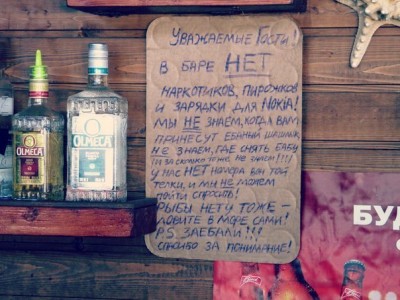 Уважаемые Гости!
В БАРЕ НЕТ
НАРКОТИКОВ, ПИРОЖКОВ
И ЗАРЯДКИ ДЛЯ NOKIA!
МЫ НЕ ЗНАЕМ, КОГДА ВАМ
ПРИНЕСУТ ЕБАНЫЙ ШАШЛЫК,
НЕ ЗНАЕМ, ГДЕ СНЯТЬ БАБУ
И ЗА СКОЛЬКО ТОЖЕ НЕ
У НАС НЕТ НОМЕРА ВОН ТОЙ
ТЕЛКИ, И МЫ НЕ МОЖЕМ
ПОЙТИ СПРОСИТЬ!
РЫБЫ НЕТУ ТОЖЕ -
ЛОВИТЕ В МОРЕ САМИ!
P.S ЗАЕБАЛИ!!!
СПАСИБО ЗА ПОНИМАНИЕ!
OLMECA
OLMECA
БУД